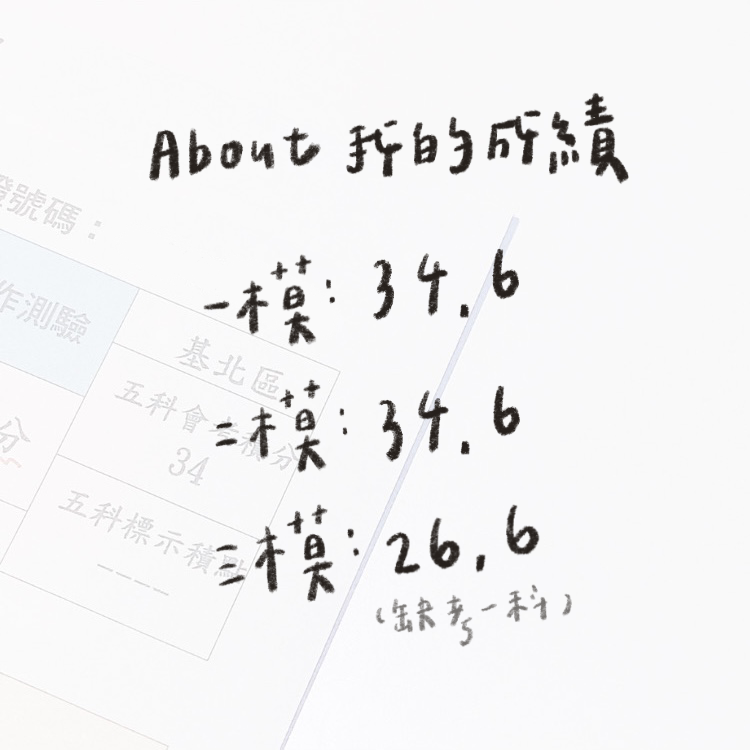 About 我的成績
一模: 34.6
二模: 34.6
三模: 26.6
(缺考一科)
證號碼：
作測驗
基北區
五科會考積分
34
分
五科標示積點
----